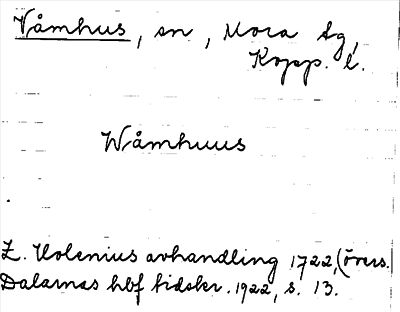 Våmhus, sn, Mora tg,
Kopp. l.
Wåmhuus
Z. Holenius avhandling 1722, (övers.
Dalarnas hbf tidskr. 1922, s. 13.